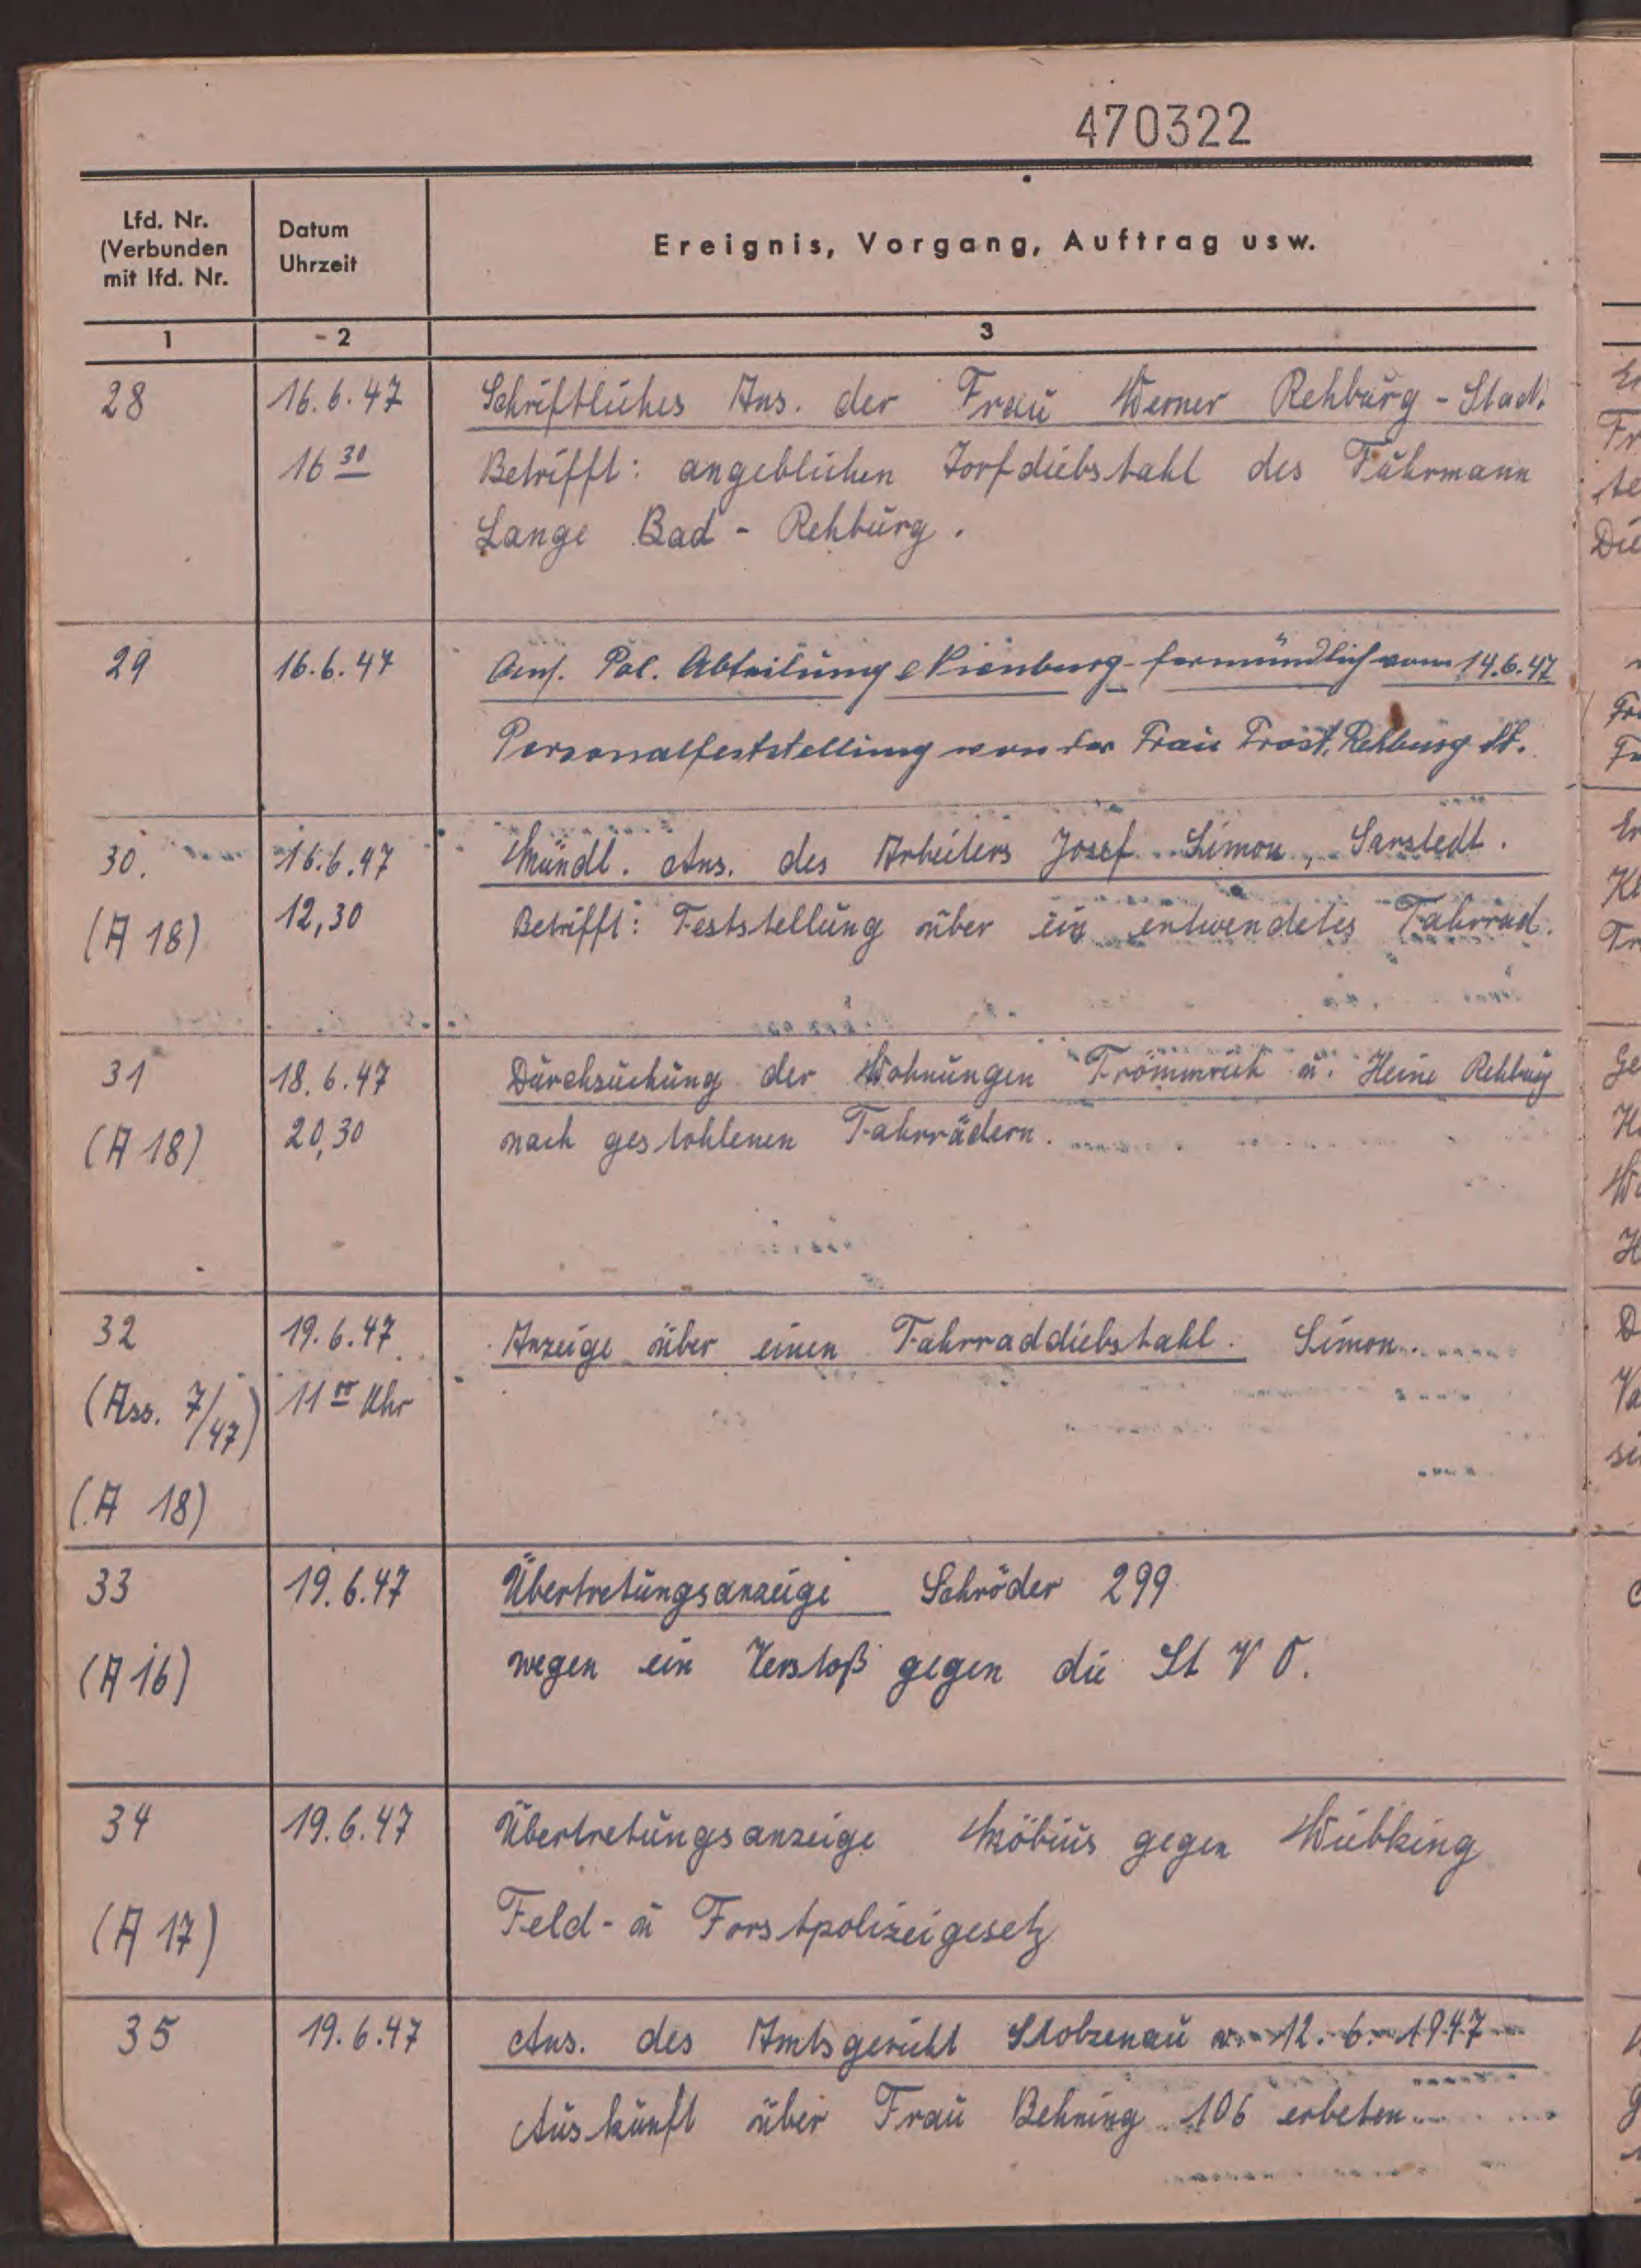 470322
Lfd. Nr.
(Verbunden
mit lfd. Nr.
Datum
Uhrzeit
Ereignis, Vorgang, Auftrag usw.
1
2
3
28
16.6.47
Schriftliches Ans. der Frau Werner Rehburg-Stadt.
16 30
Betrifft: angeblichen Torfdiebstahl des Fuhrmann
Lange Bad-Rehburg.
29
16.6.47
Ans. Pol. Abteilung Nienburg fernmündlich vom 14.6.47
Personalfeststellung von der Frau Trost, Rehburg St.
30.
16.6.47
Mündl. Ans. des Arbeiters Josef Simon, Sarstedt.
(A 18)
12,30
Betrifft: Feststellung über ein entwendetes Fahrrad.
31
18.6.47
Durchsuchung der Wohnungen u. Heine Rehburg
(A 18)
20,30
nach gestohlenen Fahrrädern.
32
19.6.47
Anzeige über einen Fahrraddiebstahl. Simon.
(Ass. 7/47)
11 00 Uhr
(A 18)
33
19.6.47
Übertretungsanzeige Schröder 299
(A 16)
wegen ein Verstoß gegen die St V O.
34
19.6.47
Übertretungsanzeige Möbius gegen Wübking
(A 17)
Feld- u Forstpolizeigesetz
35
19.6.47
Ans. des Amtsgericht Stolzenau v. 12.6.1947
Auskunft über Frau Behning 106 erbeten